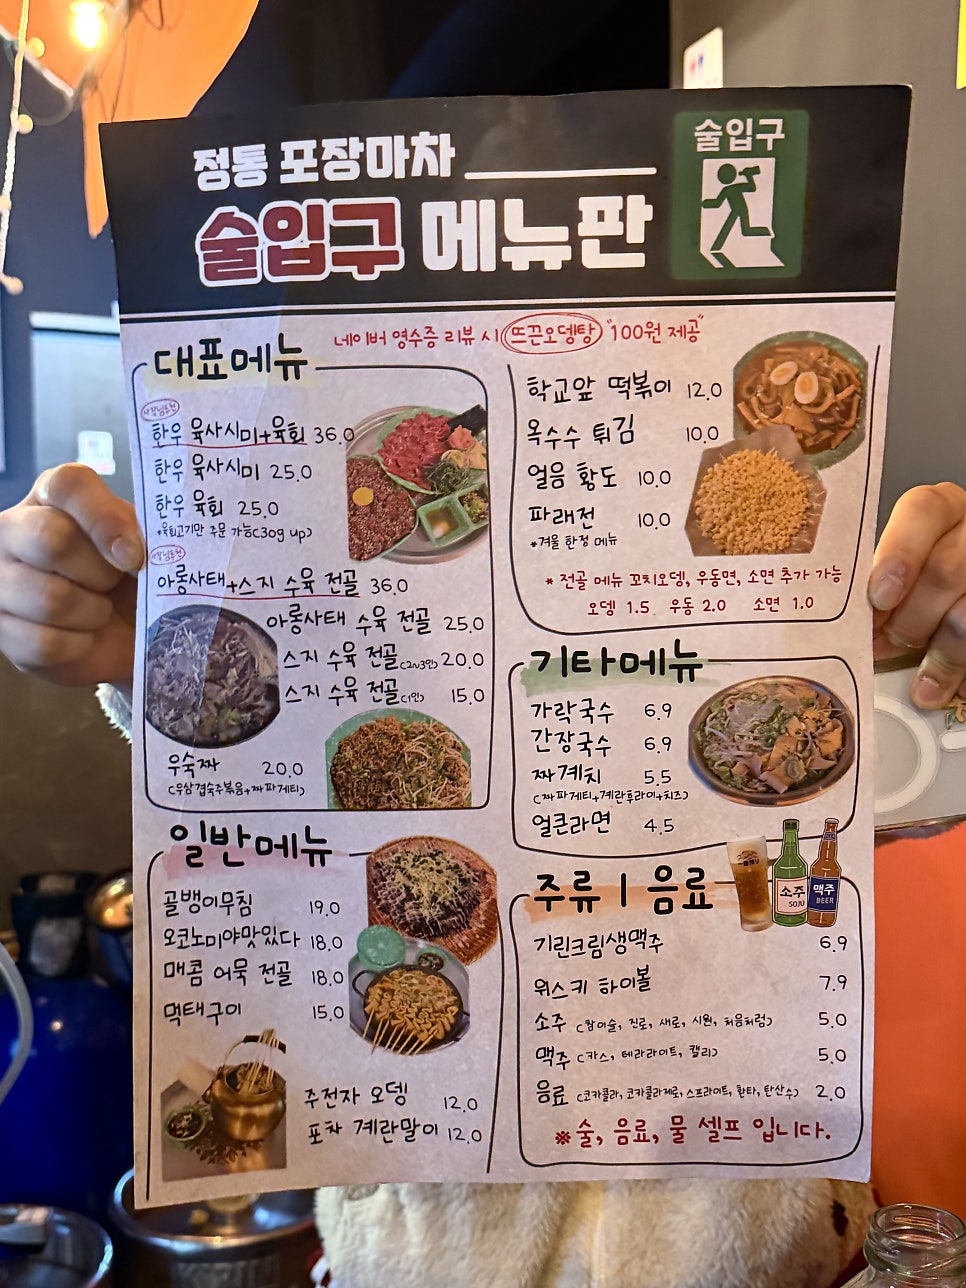 정통 포장마차
술입구 메뉴판
술입구
네이버 영수증 리뷰 시 뜨끈오뎅탕 "100원 제공"
대표메뉴
사장님추천
한우 육사시미+육회 36.0
한우 육사시미 25.0
한우 육회 25.0
*육회고기만 주문 가능(30g up)
사장님추천
아롱사태+스지 수육 전골 36.0
아롱사태 수육 전골 25.0
스지 수육 전골(2~3인) 20.0
스지 수육 전골(1인) 15.0
우숙짜 20.0
(우삼겹숙주볶음+짜파게티)
일반메뉴
골뱅이무침 19.0
오코노미야맛있다 18.0
매콤 어묵 전골 18.0
먹태구이 15.0
주전자 오뎅 12.0
포차 계란말이 12.0
학교앞 떡볶이 12.0
옥수수 튀김 10.0
얼음 황도 10.0
파래전 10.0
*겨울 한정 메뉴
* 전골 메뉴 꼬치오뎅, 우동면, 소면 추가 가능
오뎅 1.5 우동 2.0 소면 1.0
기타메뉴
가락국수 6.9
간장국수 6.9
짜계치 5.5
(짜파게티+계란후라이+치즈)
얼큰라면 4.5
주류 | 음료
소주
SOJU
맥주
BEER
기린크림생맥주 6.9
위스키 하이볼 7.9
소주 (참이슬, 진로, 새로, 시원, 처음처럼) 5.0
맥주 (카스, 테라라이트, 켈리) 5.0
음료 (코카콜라, 코카콜라제로, 스프라이트, 환타, 탄산수) 2.0
※술, 음료, 물 셀프 입니다.